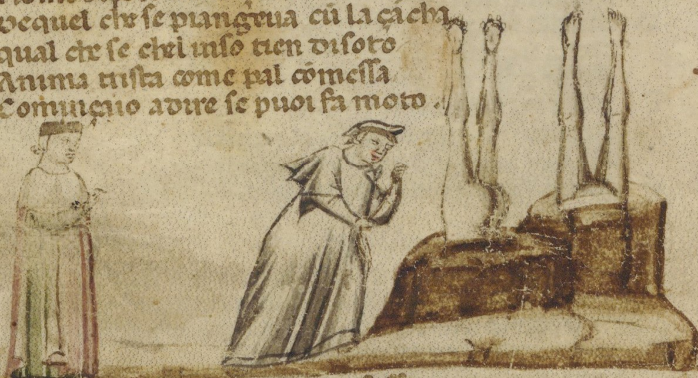 Dequel che se piangeua cũ la çãcha
qual che se chel inso tien disoto
Anima trista come pal cõmessa
Comiçaio a dire se puoi fa moto.